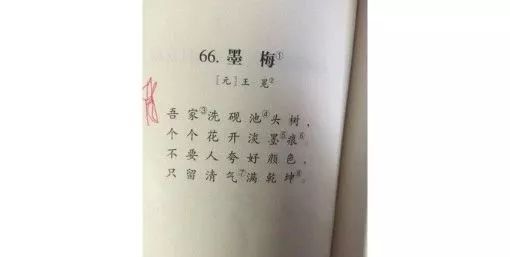 66. 墨 梅①
［元］王 冕②
吾家③洗砚池④头树，
个个花开淡墨⑤痕⑥。
不要人夸好颜色，
只留清气⑦满乾坤⑧。